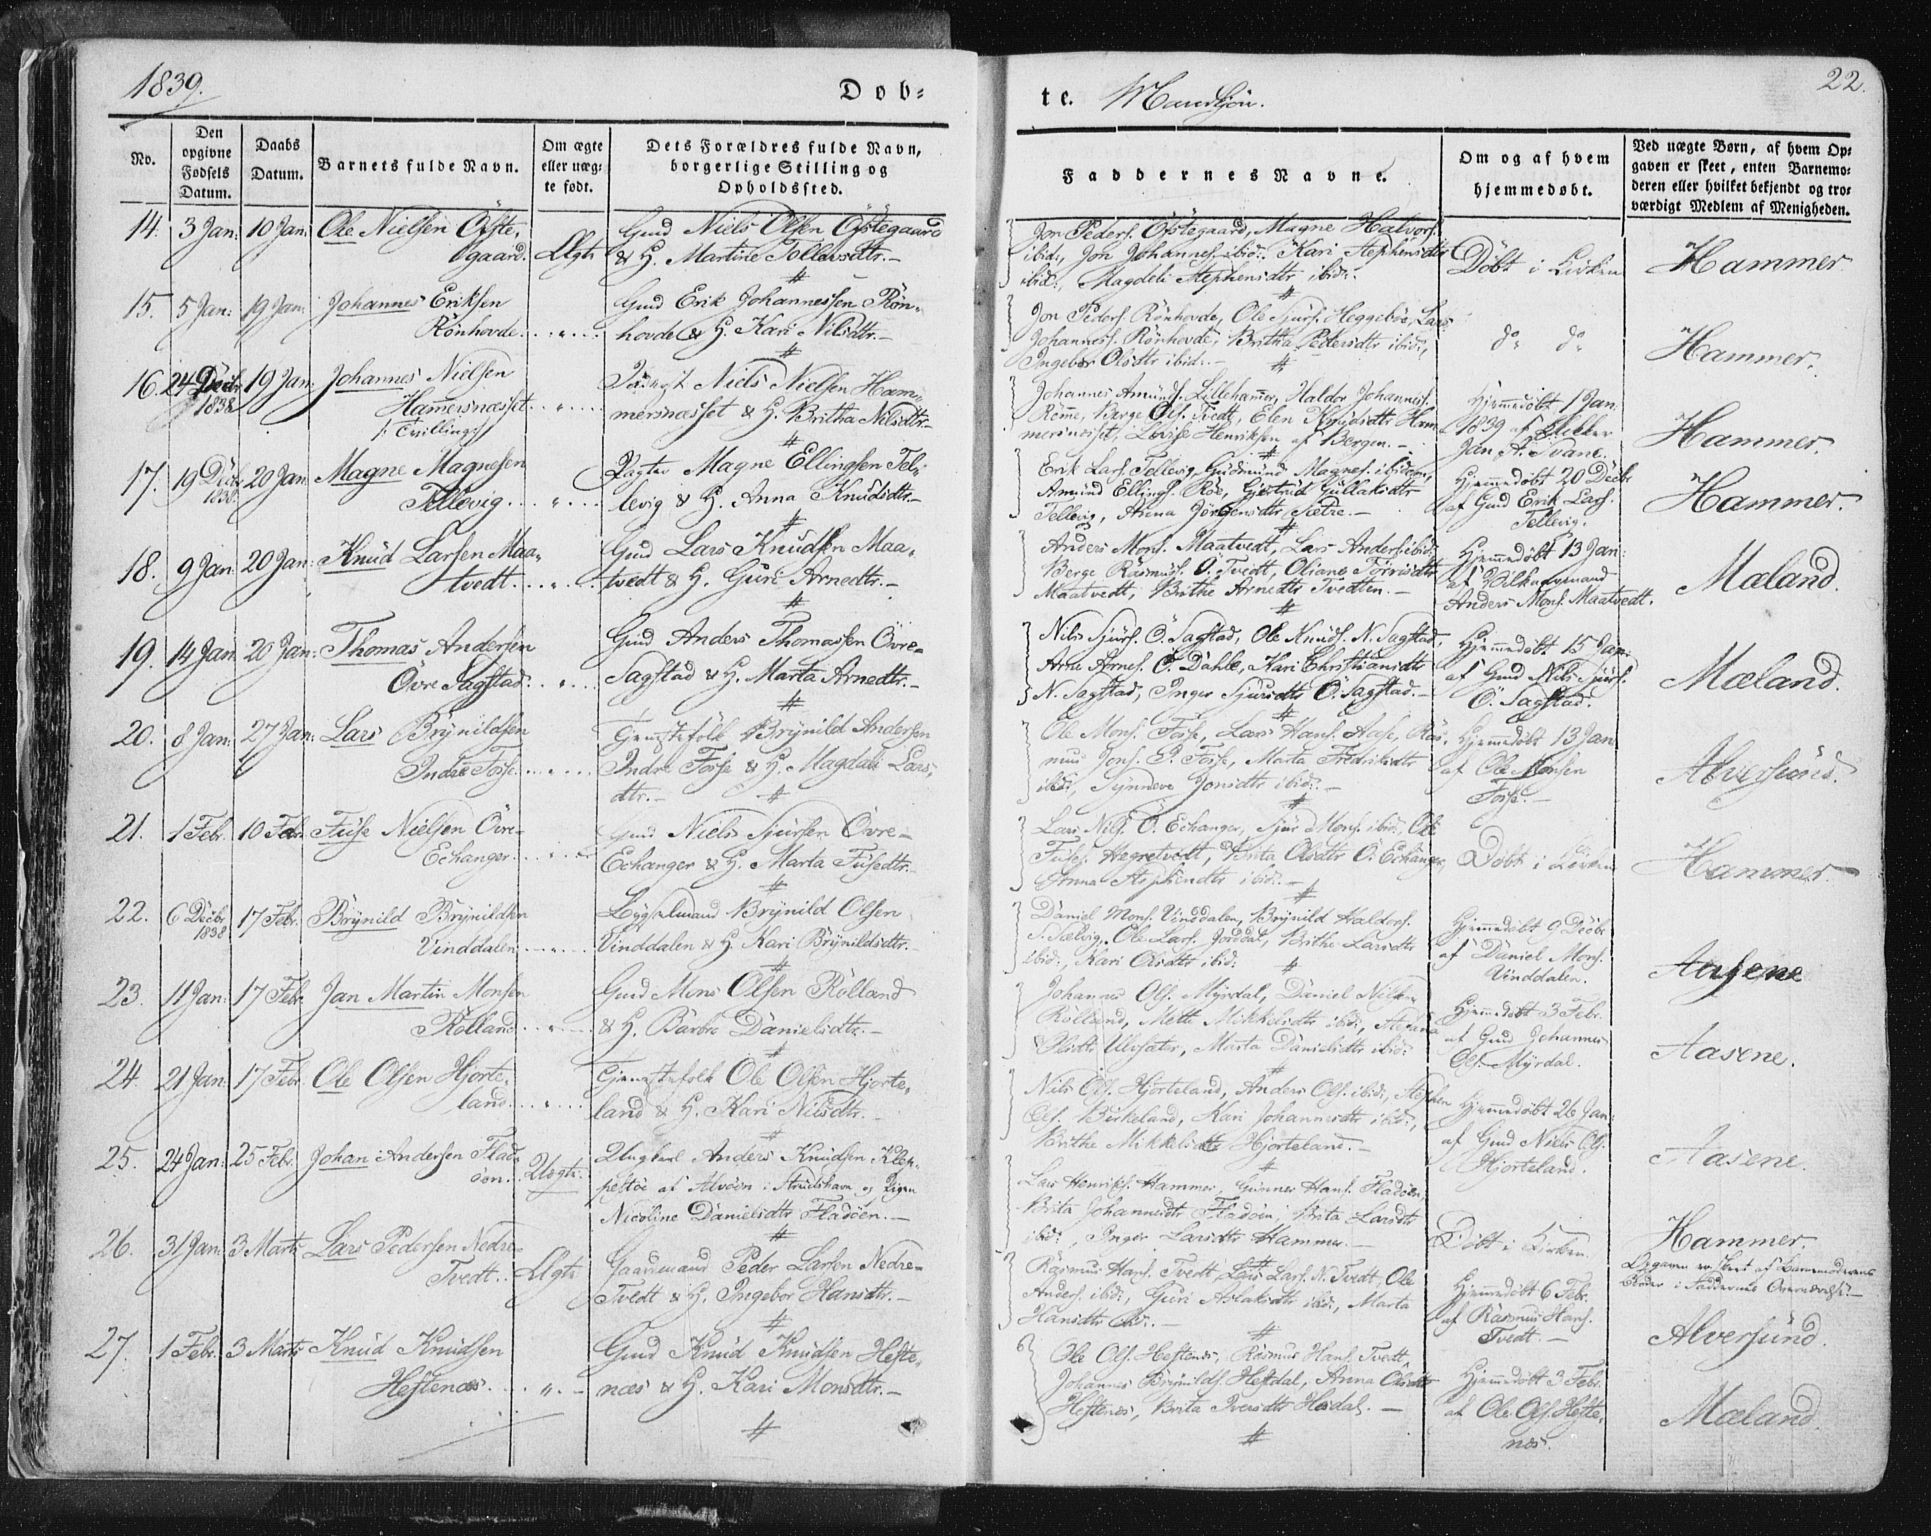 1839.
Döb-
te. Mandkjön.
22.
No.
Den opgivne Födsels Datum.
Daabs Datum.
Barnets fulde Navn.
Om ægte eller uægte födt.
Dets Forældres fulde Navn, borgerlige Stilling og Opholdssted.
Faddernes Navne.
Om og af hvem hjemmedöbt.
Ved uægte Börn, af hvem Opgaven er skeet, enten Barnemoderen eller hvilket bekjendt og troværdigt Medlem af Menigheden.
14. 3 Jan: 10 Jan: Ole Nielsen Öfste-
gaard. Ægte
Gmd Niels Olsen Öfstegaard
& H. Martine Tollevsdtr.
Jon Peders. Öfstegaard, Magne Halvors.
ibid:, Jon Johannes. ibid:, Kari Stephensdtr
ibid:, Magdeli Stephensdtr ibid:
Döbt i Kirken
Hammer.
15. 5 Jan: 19 Jan: Johannes Eriksen
Rönhovde
Gmd Erik Johannessen Rön-
hovde & H. Kari Nilsdtr.
Jon Peders. Rönhovde, Ole Sjurs. Heggeböe, Lars
Johanness. Rönhovde, Britha Pedersdtr ibid:,
Ingebor Olsdtr ibid:
do do
Hammer.
16. 24 Decbr 1838 19 Jan: Johannes Nielsen
Hamersnæsset
/: Tvilling :/
Niels Nielsen Ham-
mersnæsset & H. Britha Nilsdtr.
Johannes Amunds. Lillehamer, Haldor Johanness.
Römme, Berge Ols. Tvedt, Elen Knudsdtr Ham-
mersnæsset, Lovise Henriksen af Bergen.
Hjemmedöbt 1 Jan:
1839 af Klokker
Jan A. Tvane.
Hammer.
17. 19 Decbr 1838 20 Jan: Magne Magnesen
Tellevig
Magne Ellingsen Tel-
levig & H. Anna Knudsdtr.
Erik Lars. Tellevig, Gudmund Magnes. ibidem,
Amund Ellings. Röe, Gjertrud Gullaksdtr
Tellevig, Anna Jörgensdtr Sætre.
Hjemmedöbt 20 Decbr
af Gmd Erik Lars.
Tellevig.
Hammer.
18. 9 Jan: 20 Jan: Knud Larsen Maa-
tvedt
Gmd Lars Knudsen Maa-
tvedt & H. Guri Arnedtr.
Anders Mons. Maatvedt, Lars Anders. ibid:,
Berge Rasmus. Ö. Tvedt, Oliane Torrisdtr
Maatvedt, Brithe Arnedtr Tvedten.
Hjemmedöbt 13 Jan:
af
Anders Mons. Maatvedt.
Mæland.
19. 14 Jan: 20 Jan: Thomas Andersen
Övre Sagstad
Gmd Anders Thomassen Övre-
Sagstad & H. Marta Arnedtr.
Nils Sjurs. Ö. Sagstad, Ole Knuds. N. Sagstad,
Arne Arnes. Ö. Dahle, Kari Christiansdtr
N. Sagstad, Inger Sjursdtr Ö. Sagstad.
Hjemmedöbt 15 Jan:
af Gmd Nils Sjurs.
Ö. Sagstad.
Mæland.
20. 8 Jan: 27 Jan: Lars Brynildsen
Indre Fosse
Tjenstefolk Brynild Andersen
Indre Fosse & H. Magdali Lars-
dtr.
Ole Mons. Fosse, Lars Hans. Aase, Ras-
mus Jons. I. Fosse, Marta Fredriksdtr
ibid:, Synneve Jonsdtr ibid:
Hjemmedöbt 13 Jan:
af Ole Monsen
Fosse.
Alversund.
21. 1 Febr. 10 Febr. Fuse Nielsen Övre-
Echanger
Gmd Niels Sjursen Övre-
Echanger & H. Marta Fusedtr.
Lars Nils. Ö. Echanger, Sjur Mons. ibid:, Ole
Fuses. Hegretvedt, Brita Olsdtr Ö. Echanger,
Anna Stephensdtr ibid:
Döbt i Kirken
Hammer.
22. 6 Decbr 1838 17 Febr. Brynild Brynildsen
Vinddalen
Brynild Olsen
Vinddalen & H. Kari Brynildsdtr.
Daniel Mons. Vinddalen, Brynild Haldors.
Sælvig, Ole Lars. Joddal, Brithe Larsdtr
ibid:, Kari Olsdtr ibid:
Hjemmedöbt 9 Decbr
af Daniel Mons.
Vinddalen.
Aasene
23. 11 Jan: 17 Febr. Jan Martin Monsen
Rölland
Gmd Mons Olsen Rölland
& H. Barbro Danielsdtr.
Johannes Ols. Myrdal, Daniel Nils.
Rölland, Mette Mikkelsdtr ibid:,
Olsdtr Ulvsæter, Marta Danielsdtr ibid:
Hjemmedöbt 3 Febr.
af Gmd Johannes
Ols. Myrdal.
Aasene.
24. 21 Jan: 17 Febr. Ole Olsen Hjorte-
land
Tjenstefolk Ole Olsen Hjorte-
land & H. Kari Nilsdtr.
Nils Ols. Hjorteland, Anders Ols. ibid:, Stephen
Ols. Birkeland, Kari Johannesdtr ibid:,
Brithe Mikkelsdtr Hjorteland.
Hjemmedöbt 26 Jan:
af Gmd Niels Ols.
Hjorteland.
Aasene.
25. 24 Jan: 25 Febr. Johan Andersen Flad-
öen. Uægte.
Ungkarl Anders Knudsen Klep-
pestöe af Alvöen i Strudshavn og Pigen
Nicoline Danielsdtr Fladöen.
Lars Henriks. Hammer, Gunner Hans. Fladöen,
Brita Johannesdtr Fladöen, Brita Larsdtr
ibid:, Inger Larsdtr Hammer.
Döbt i Kirken.
Hammer.
Opgaven er skeet af Barnemoderens
Broder i Faddernes Overværelse.
26. 31 Jan: 3 Marts Lars Pedersen Nedre-
Tvedt. Ægte
Gaardmand Peder Larsen Nedre-
Tvedt & H. Ingebor Hansdtr.
Rasmus Hans. Tvedt, Lars Lars. N. Tvedt, Ole
Anders. ibid:, Guri Aslaksdtr ibid:, Marta
Hansdtr ibid:
Hjemmedöbt 6 Febr.
af Rasmus Hans.
Tvedt.
Alversund.
27. 1 Febr. 3 Marts Knud Knudsen
Heftenæs
Gmd Knud Knudsen Hefte-
næs & H. Kari Monsdtr.
Ole Ols. Heftenæs, Rasmus Hans. Tvedt,
Johannes Brynilds. Heftdal, Anna Olsdtr
Heftenæs, Brita Iversdtr Hesdal.
Hjemmedöbt 3 Febr.
af Ole Ols. Hefte-
næs.
Mæland